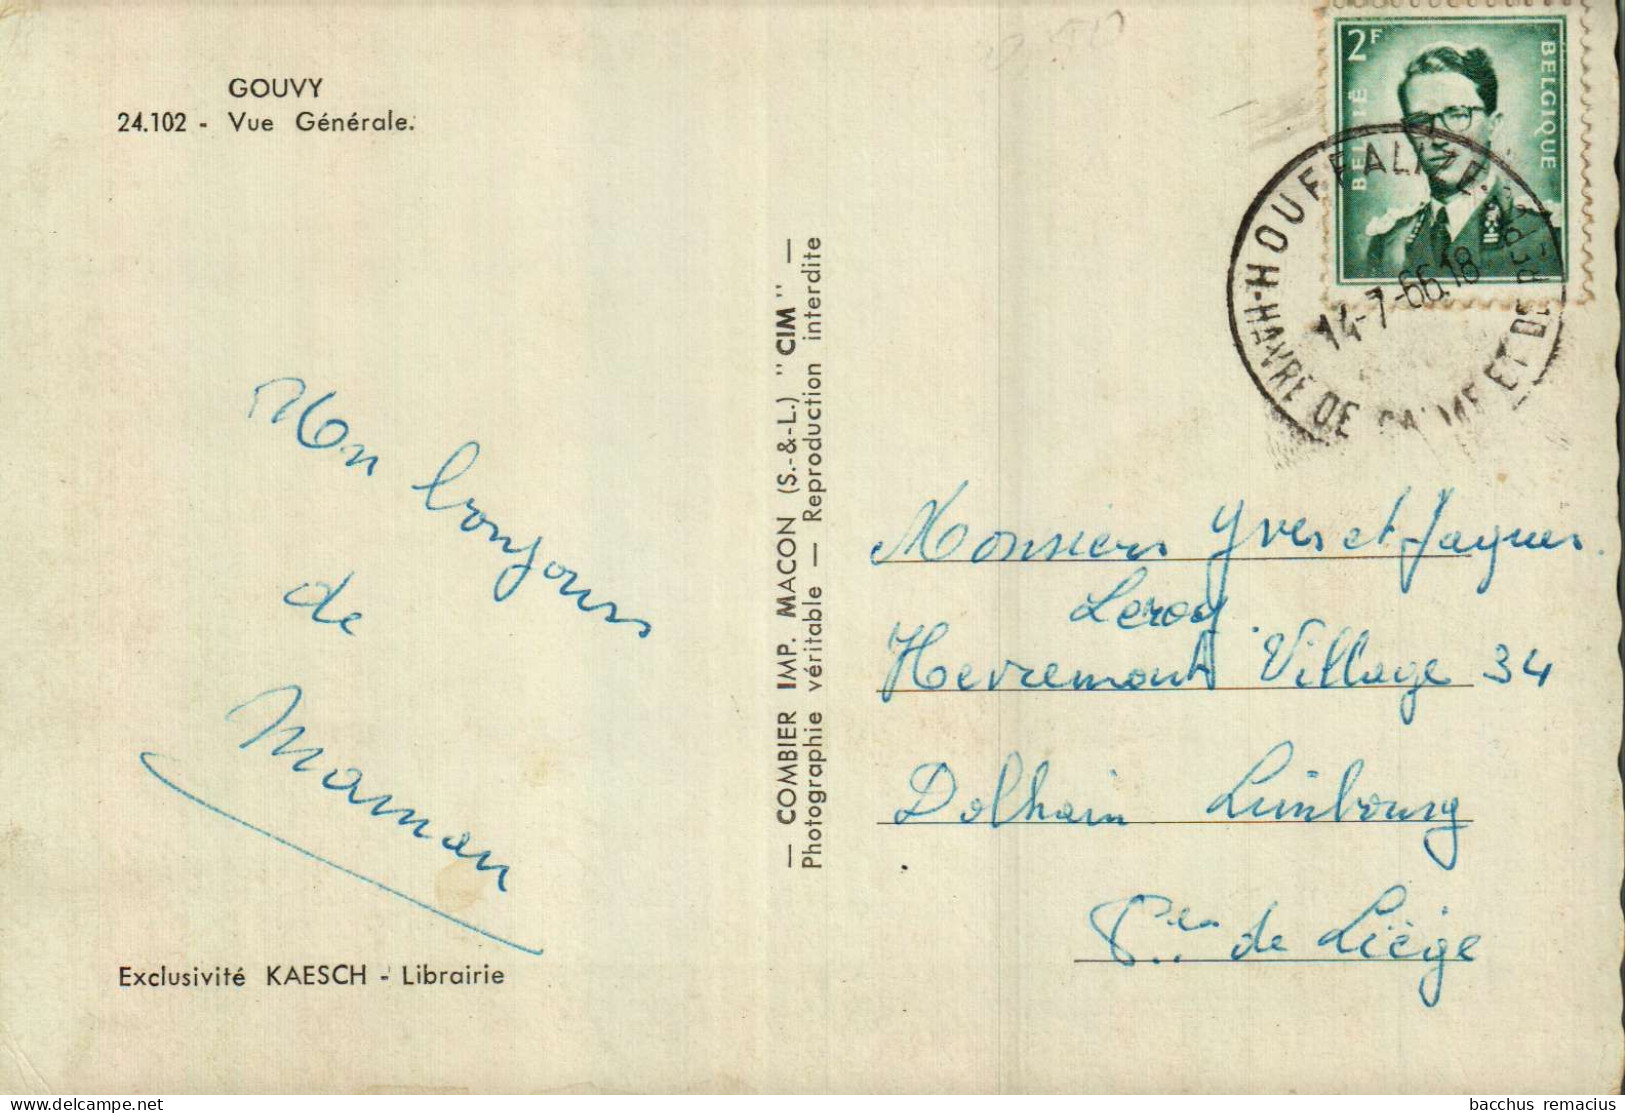 GOUVY
24.102 - Vue Générale.
2F
BELGIË
BELGIQUE
HOUFFALIZE
14-7-66.18
HAVRE DE CALME ET DE REPOS
Mon bonjours
de
Maman
— COMBIER IMP. MACON (S.-&-L.) "CIM" —
Photographie véritable — Reproduction interdite
Monsieurs Yves et Jaques
Leroy
Hevremont Village 34
Dolhain Limbourg
de Liège
Exclusivité KAESCH - Librairie
bacchus remacius